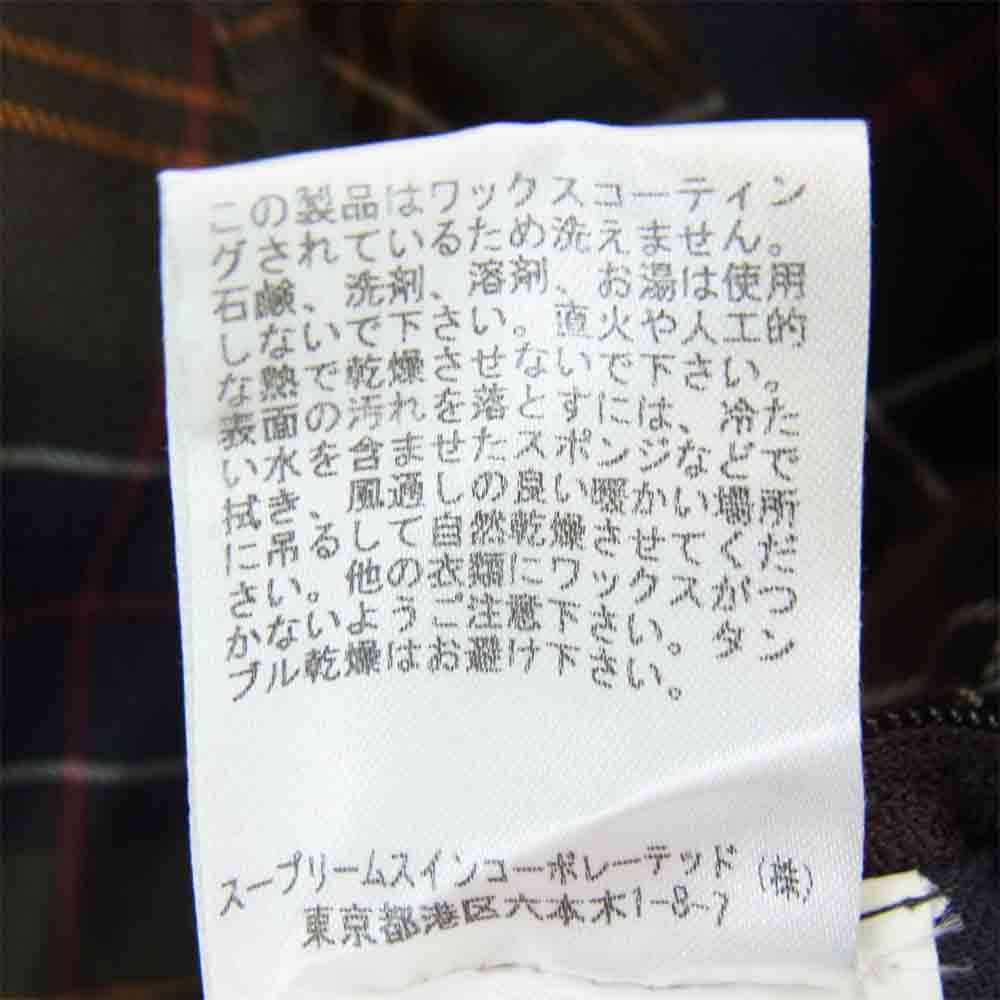 この製品はワックスコーティン
グされているため洗えません。
石鹸、洗剤、溶剤、お湯は使用
しないで下さい。直火や人工的
な熱での乾燥させないで下さい。
表面の汚れを落とすには、冷た
い水を含ませたスポンジなどで
拭き、風通しの良い暖かい場所
に吊るして自然乾燥させてくだ
さい。他の衣類にワックスがつ
かないようご注意下さい。タン
ブル乾燥はお避け下さい。
スープリームスインコーポレーテッド（株）
東京都港区六本木1-8-7